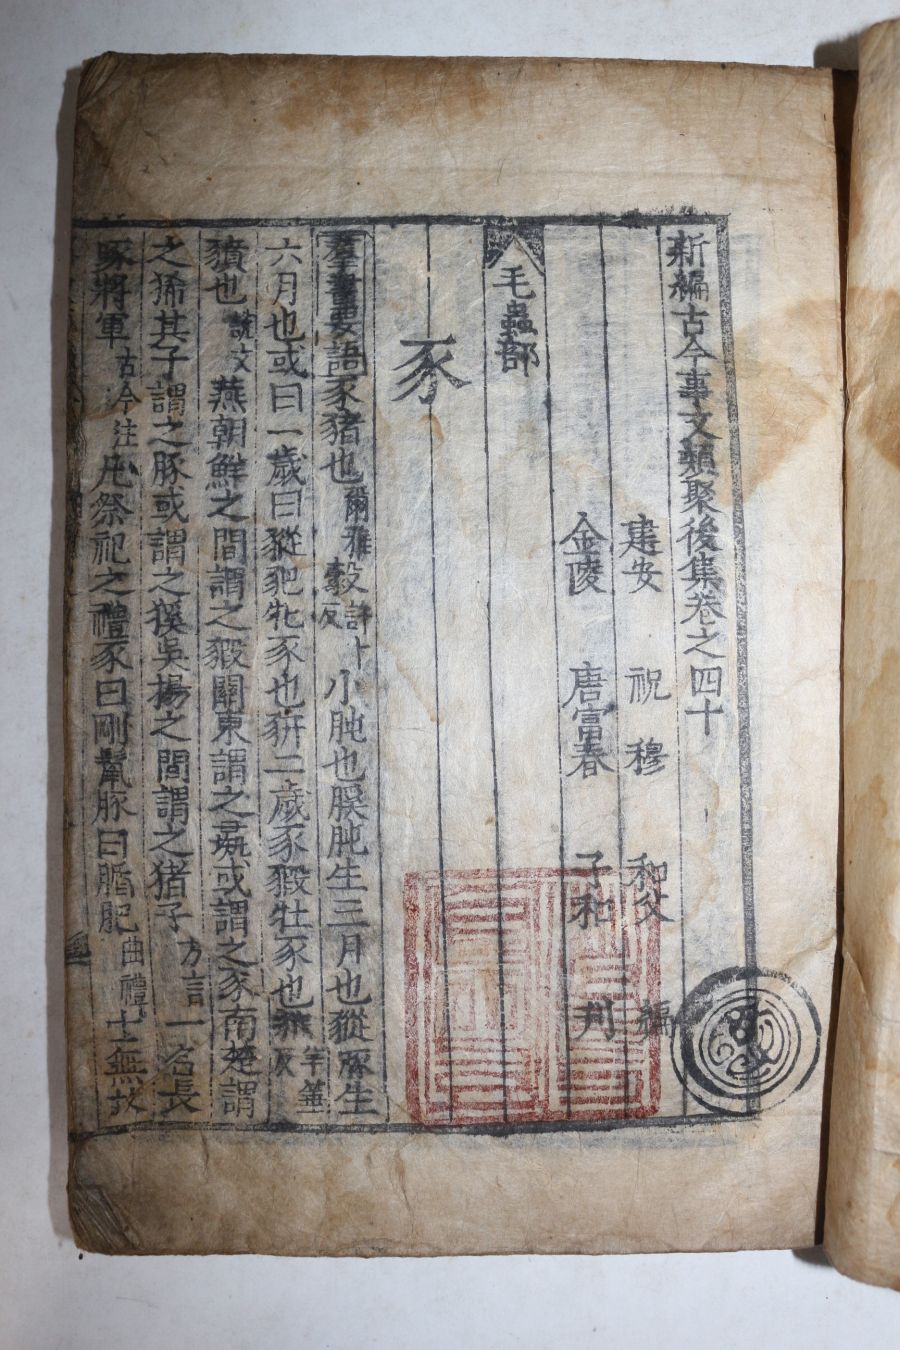 新編古今事文類聚後集卷之四十
建安 祝 穆 和父 編
金陵 唐富春 子和 刋
毛蟲部
豕
羣書要語豕猪也爾雅豰許卜反小豘也豯豘生三月也豵豚生
六月也或曰一歲曰豵豝牝豕也豣二歲豕豭牡豕也羊箠反
豶也說文燕朝鮮之間謂之豭關東謂之彘或謂之豕南楚謂
之豨其子謂之豚或謂之豯吳揚之間謂之猪子方言一名長
喙將軍古今注凡祭祀之禮豕曰剛鬣豚曰腯肥曲禮士無故